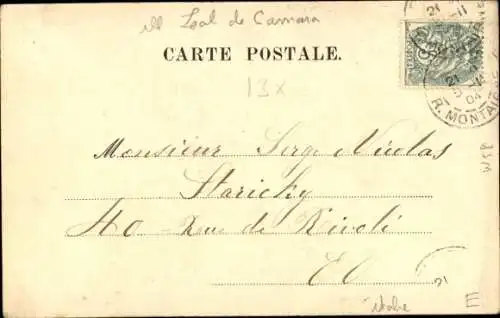 ill Leal de Camara
CARTE POSTALE.
13x
21 11
04
R. MONTA
Monsieur Serge Nicolas
Staricky
40 Rue de Rivoli
E V
21
E